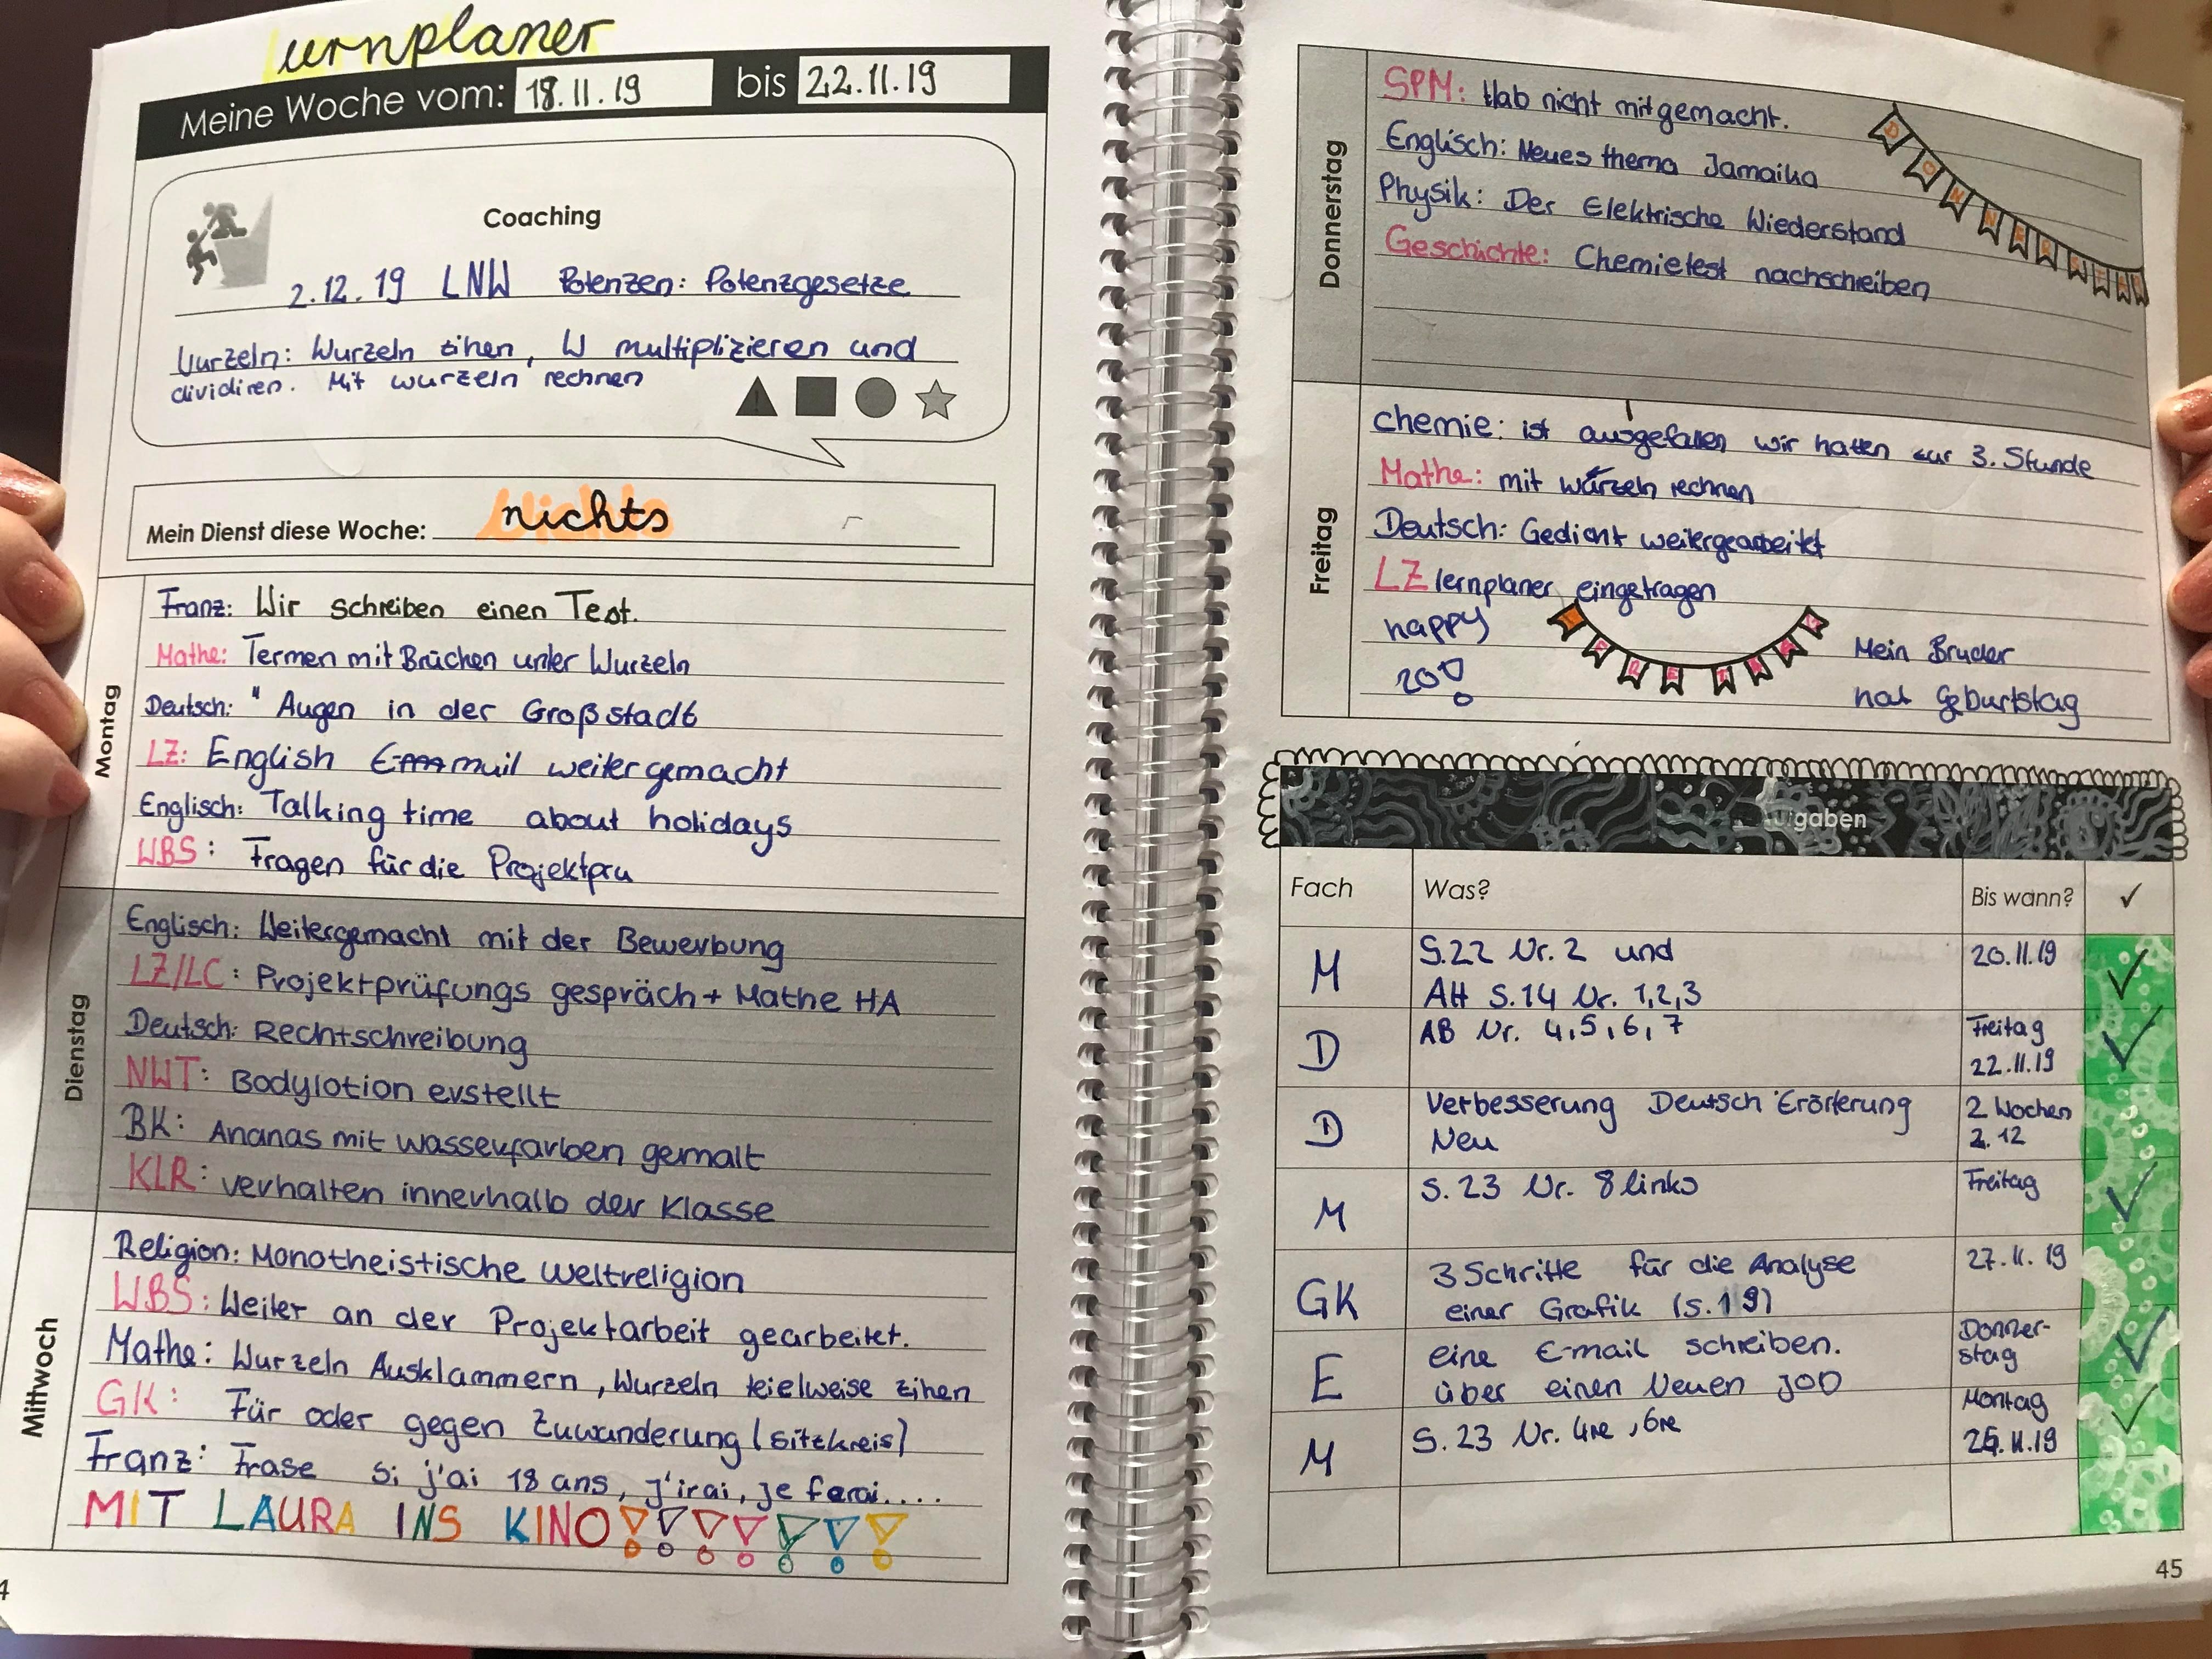 lernplaner
Meine Woche vom: 18.11.19 bis 22.11.19
Coaching
2.12.19 LNW Potenzen: Potenzgesetze
Wurzeln: Wurzeln zihen, W multiplizieren und
dividiren. Mit wurzeln rechnen
Mein Dienst diese Woche: nichts
Montag
Franz: Wir schreiben einen Test.
Mathe: Termen mit Brüchen unter Wurzeln
Deutsch: " Augen in der Großstadt
LZ: English E-mail weitergemacht
Englisch: Talking time about holidays
WBS: Fragen für die Projektpru
Dienstag
Englisch: Weitergemacht mit der Bewerbung
LZ/LC: Projektprüfungs gespräch + Mathe HA
Deutsch: Rechtschreibung
NWT: Bodylotion erstellt
BK: Ananas mit wasserfarben gemalt
KLR: verhalten innerhalb der Klasse
Mittwoch
Religion: Monotheistische Weltreligion
WBS: Weiter an der Projektarbeit gearbeitet.
Mathe: Wurzeln Ausklammern, Wurzeln teielweise zihen
GK: Für oder gegen Zuwanderung (sitzkreis)
Franz: Frase si j'ai 18 ans, j'irai, je ferai....
MIT LAURA INS KINO!!!!!!!
4
Donnerstag
SPM: Hab nicht mitgemacht.
Englisch: Neues thema Jamaika
Physik: Der Elektrische Wiederstand
Geschichte: Chemietest nachschreiben
DONNERSTAG
Freitag
chemie: ist ausgefallen wir hatten zur 3. Stunde
Mathe: mit wurzeln rechnen
Deutsch: Gedicht weitergearbeitet
LZ lernplaner eingetragen
happy
20!
FREITAG
Mein Bruder
hat Geburtstag
ufgaben
Fach Was? Bis wann? ✓
M S.22 Nr. 2 und 20.11.19 ✓
AH S.14 Nr. 1,2,3
D AB Nr. 4,5,6,7 Freitag ✓
22.11.19
D Verbesserung Deutsch Erörterung 2 Wochen
Neu 2.12
M S.23 Nr. 8 links Freitag ✓
GK 3 Schritte für die Analyse 27.11.19
einer Grafik (S.19)
E eine E-mail schreiben. Donner- ✓
über einen Neuen JOB stag
M S.23 Nr. 4re, 6re Montag ✓
25.11.19
45